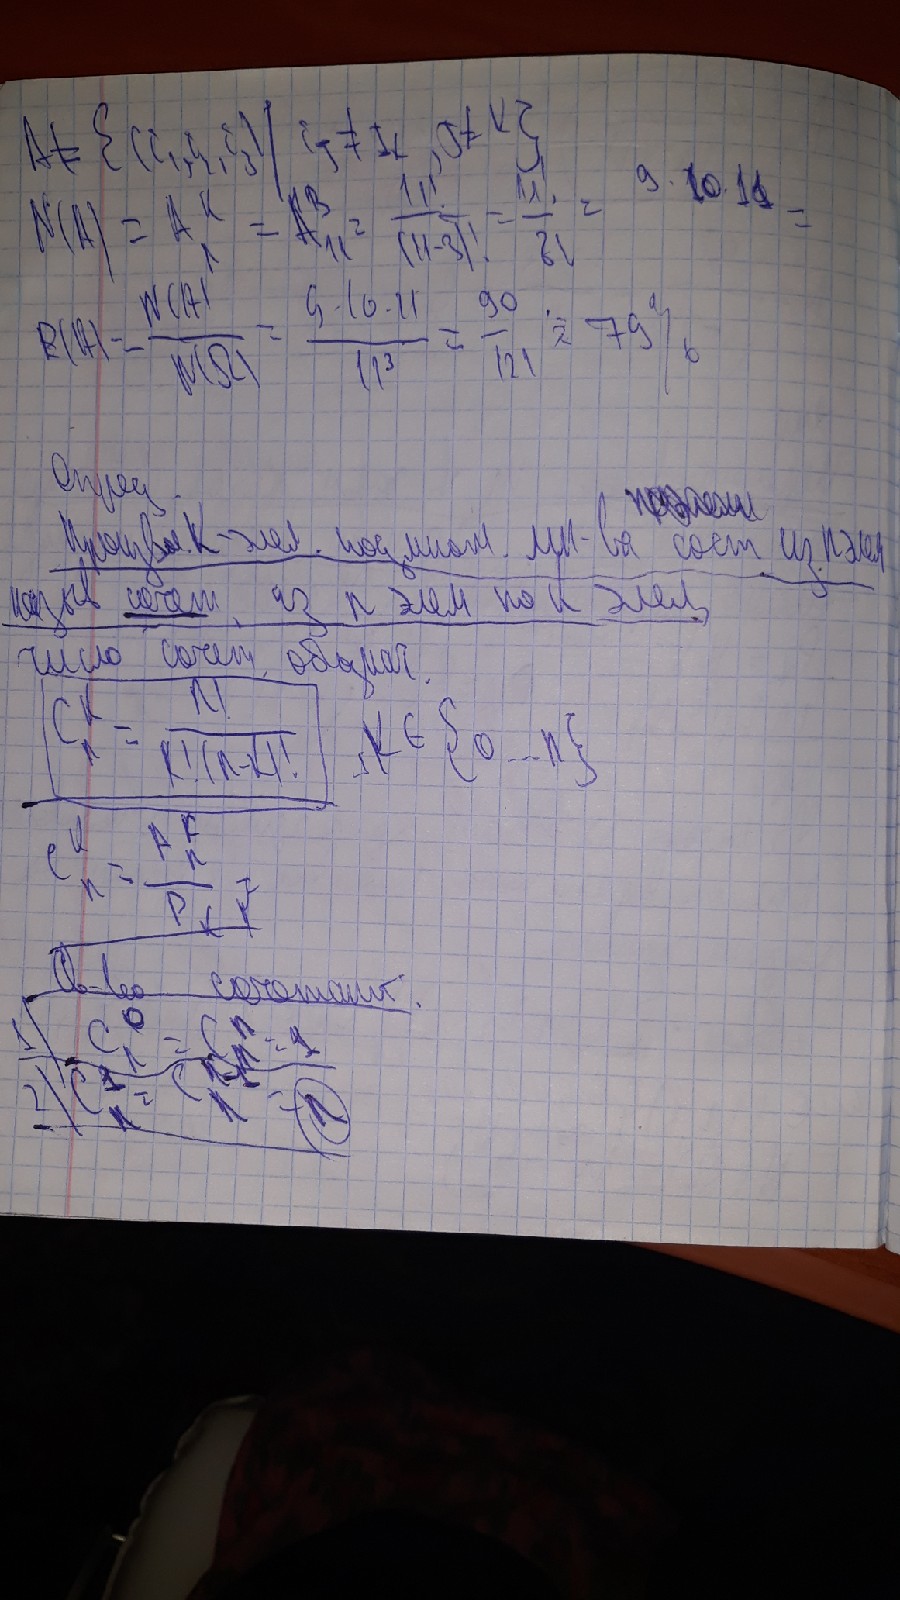 A = {(i₁, i₂, i₃) | i_j ≠ i_k, j ≠ k}
N(A) = A_n^k = A_11^3 = 11!/(11-3)! = 11!/8! = 9·10·11 =
P(A) = N(A)/N(Ω) = 9·10·11/11³ = 90/121 ≈ 79%
Опред.
Произвол. k-элем. подмнож. мн-ва сост из n элем
назыв сочет. из n элем по k элем,
число сочет. обознач.
C_n^k = n!/k!(n-k)! , k ∈ {0...n}
C_n^k = A_n^k/P_k =
Св-во сочетаний.
1) C_n^0 = C_n^n = 1
2) C_n^1 = C_n^{n-1} = n